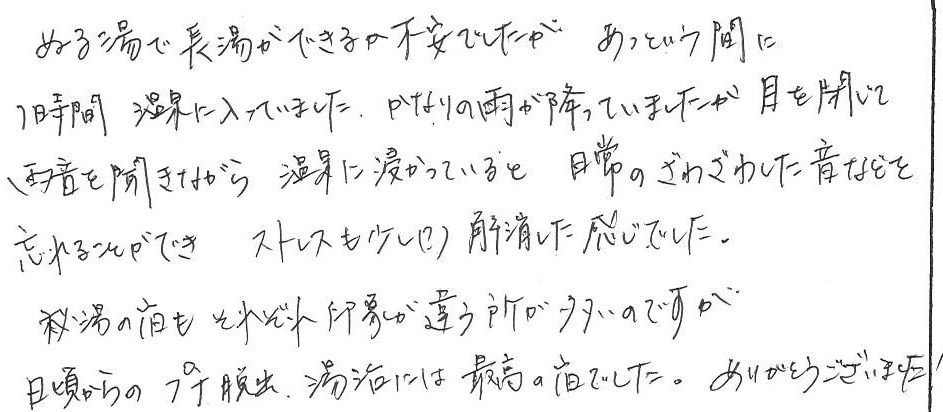 ぬる湯で長湯ができるか不安でしたが あっという間に
1時間 温泉に入っていました。かなりの雨が降っていましたが 目を閉じて
雨音を聞きながら 温泉に浸かっていると 日常のざわざわした音などを
忘れることができ ストレスも少し(?)解消した感じでした。
秘湯の宿も それぞれ印象が違う所が多いのですが
日頃からの プチ脱出、湯治には 最高の宿でした。ありがとうございました!